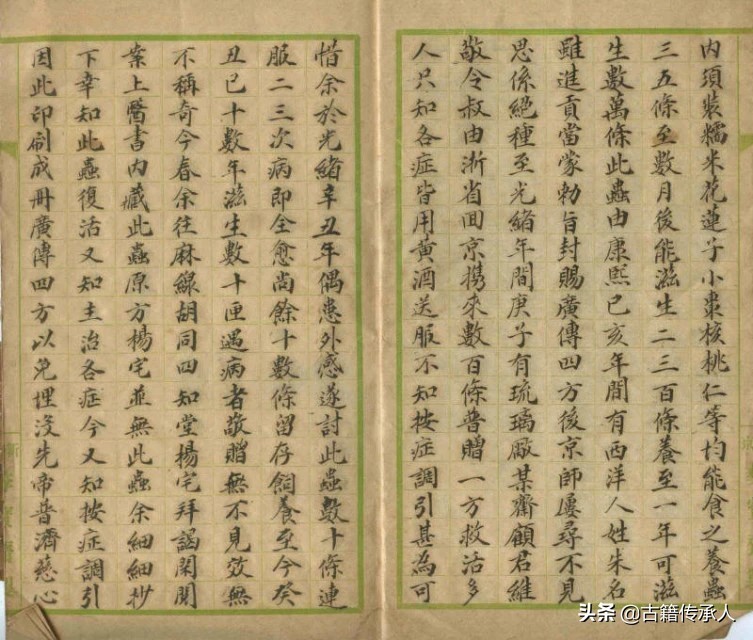 內須裝糯米花蓮子小棗核桃仁等均能食之養蟲
三五條至數月後能滋生二三百條養至一年可滋
生數萬條此蟲由康熙已亥年間有西洋人姓朱名
雖進貢當蒙勅旨封賜廣傳四方後京師屢尋不見
思係絕種至光緒年間庚子有琉璃厰某齋顧君維
敬令叔由浙省回京携來數百條普贈一方救活多
人只知各症皆用黃酒送服不知按症調引甚為可
惜余於光緒辛丑年偶患外感遂討此蟲數十條連
服二三次病即全愈尚餘十數條留存飼養至今癸
丑已十數年滋生數十匣遇病者敬贈無不見效無
不稱奇今春余往麻線胡同四知堂楊宅拜謁閑閱
案上醫書內藏此蟲原方楊宅並無此蟲余細細抄
下幸知此蟲復活又知主治各症今又知按症調引
因此印刷成冊廣傳四方以免埋沒先帝普濟慈心
头条 @古籍传承人